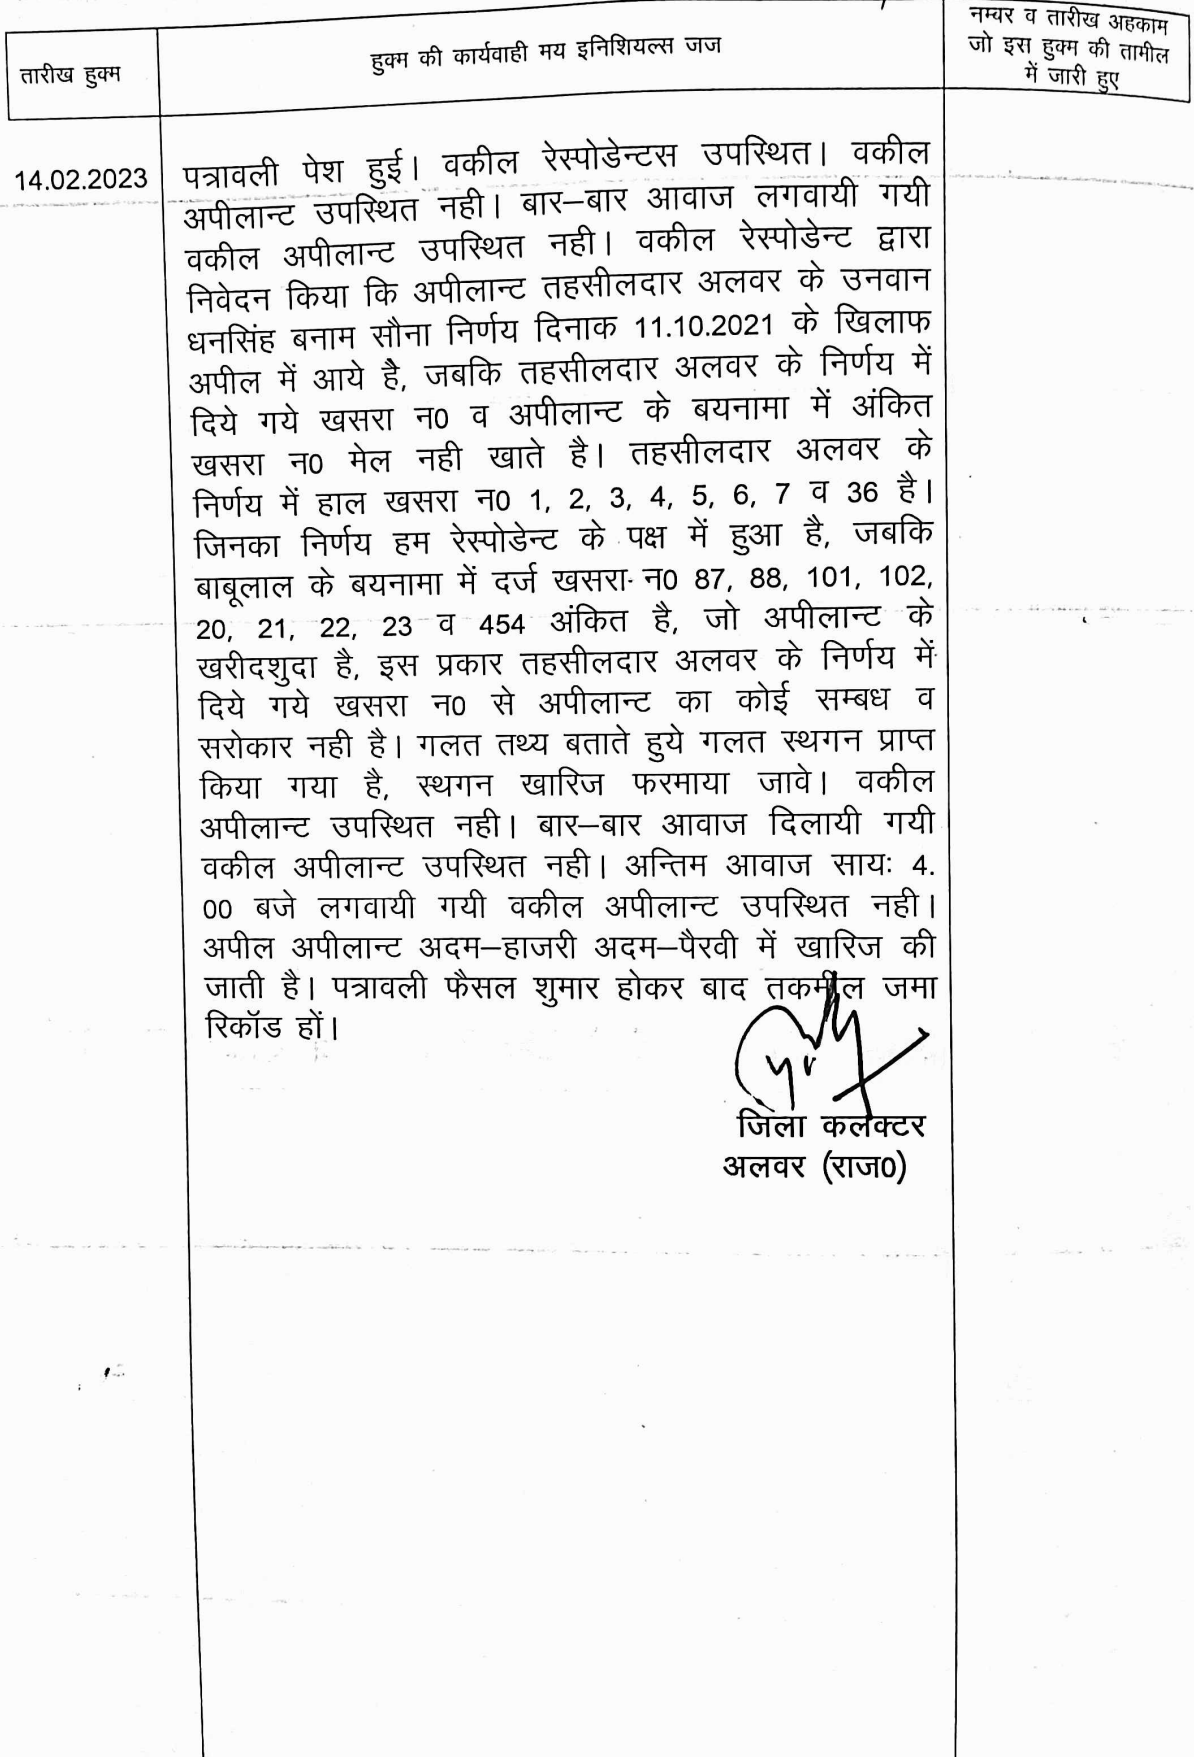 तारीख हुक्म
हुक्म की कार्यवाही मय इनिशियल्स जज
नम्बर व तारीख अहकाम
जो इस हुक्म की तामील
में जारी हुए
14.02.2023
पत्रावली पेश हुई। वकील रेस्पोडेन्टस उपस्थित। वकील
अपीलान्ट उपस्थित नही। बार–बार आवाज लगवायी गयी
वकील अपीलान्ट उपस्थित नही। वकील रेस्पोडेन्ट द्वारा
निवेदन किया कि अपीलान्ट तहसीलदार अलवर के उनवान
धनसिंह बनाम सौना निर्णय दिनाक 11.10.2021 के खिलाफ
अपील में आये है, जबकि तहसीलदार अलवर के निर्णय में
दिये गये खसरा न0 व अपीलान्ट के बयनामा में अंकित
खसरा न0 मेल नही खाते है। तहसीलदार अलवर के
निर्णय में हाल खसरा न0 1, 2, 3, 4, 5, 6, 7 व 36 है।
जिनका निर्णय हम रेस्पोडेन्ट के पक्ष में हुआ है, जबकि
बाबूलाल के बयनामा में दर्ज खसरा न0 87, 88, 101, 102,
20, 21, 22, 23 व 454 अंकित है, जो अपीलान्ट के
खरीदशुदा है, इस प्रकार तहसीलदार अलवर के निर्णय में
दिये गये खसरा न0 से अपीलान्ट का कोई सम्बध व
सरोकार नही है। गलत तथ्य बताते हुये गलत स्थगन प्राप्त
किया गया है, स्थगन खारिज फरमाया जावे। वकील
अपीलान्ट उपस्थित नही। बार–बार आवाज दिलायी गयी
वकील अपीलान्ट उपस्थित नही। अन्तिम आवाज सायः 4.
00 बजे लगवायी गयी वकील अपीलान्ट उपस्थित नही।
अपील अपीलान्ट अदम–हाजरी अदम–पैरवी में खारिज की
जाती है। पत्रावली फैसल शुमार होकर बाद तकमील जमा
रिकॉड हों।
जिला कलक्टर
अलवर (राज0)